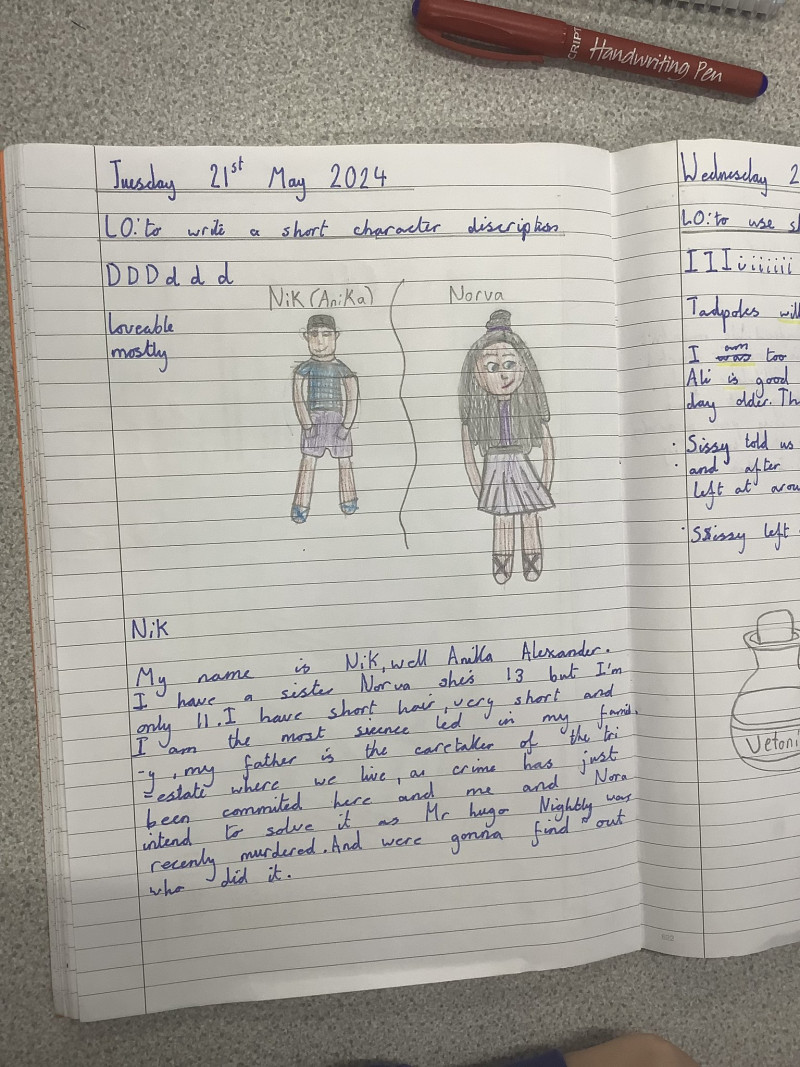 SCRIPT Handwriting Pen
Tuesday 21st May 2024
LO: to write a short character discription
DDD d d d
Nik (Anika)
Norva
loveable
mostly
Nik
My name is Nik, well Anika Alexander.
I have a sister Norva she's 13 but I'm
only 11. I have short hair, very short and
I am the most sicence led in my famil
-y, my father is the caretaker of the tri
=estate where we live, as crime has just
been commited here and me and Nora
intend to solve it as Mr hugo Nightly was
recenly murdered. And were gonna find out
who did it.
Wednesday 2
LO: to use
I I I i i i i i i
Tadpoles will
I am too
Ali is good
day older. Th
· Sissy told us
· and after
left at arou
· Sissy left
Vetoni